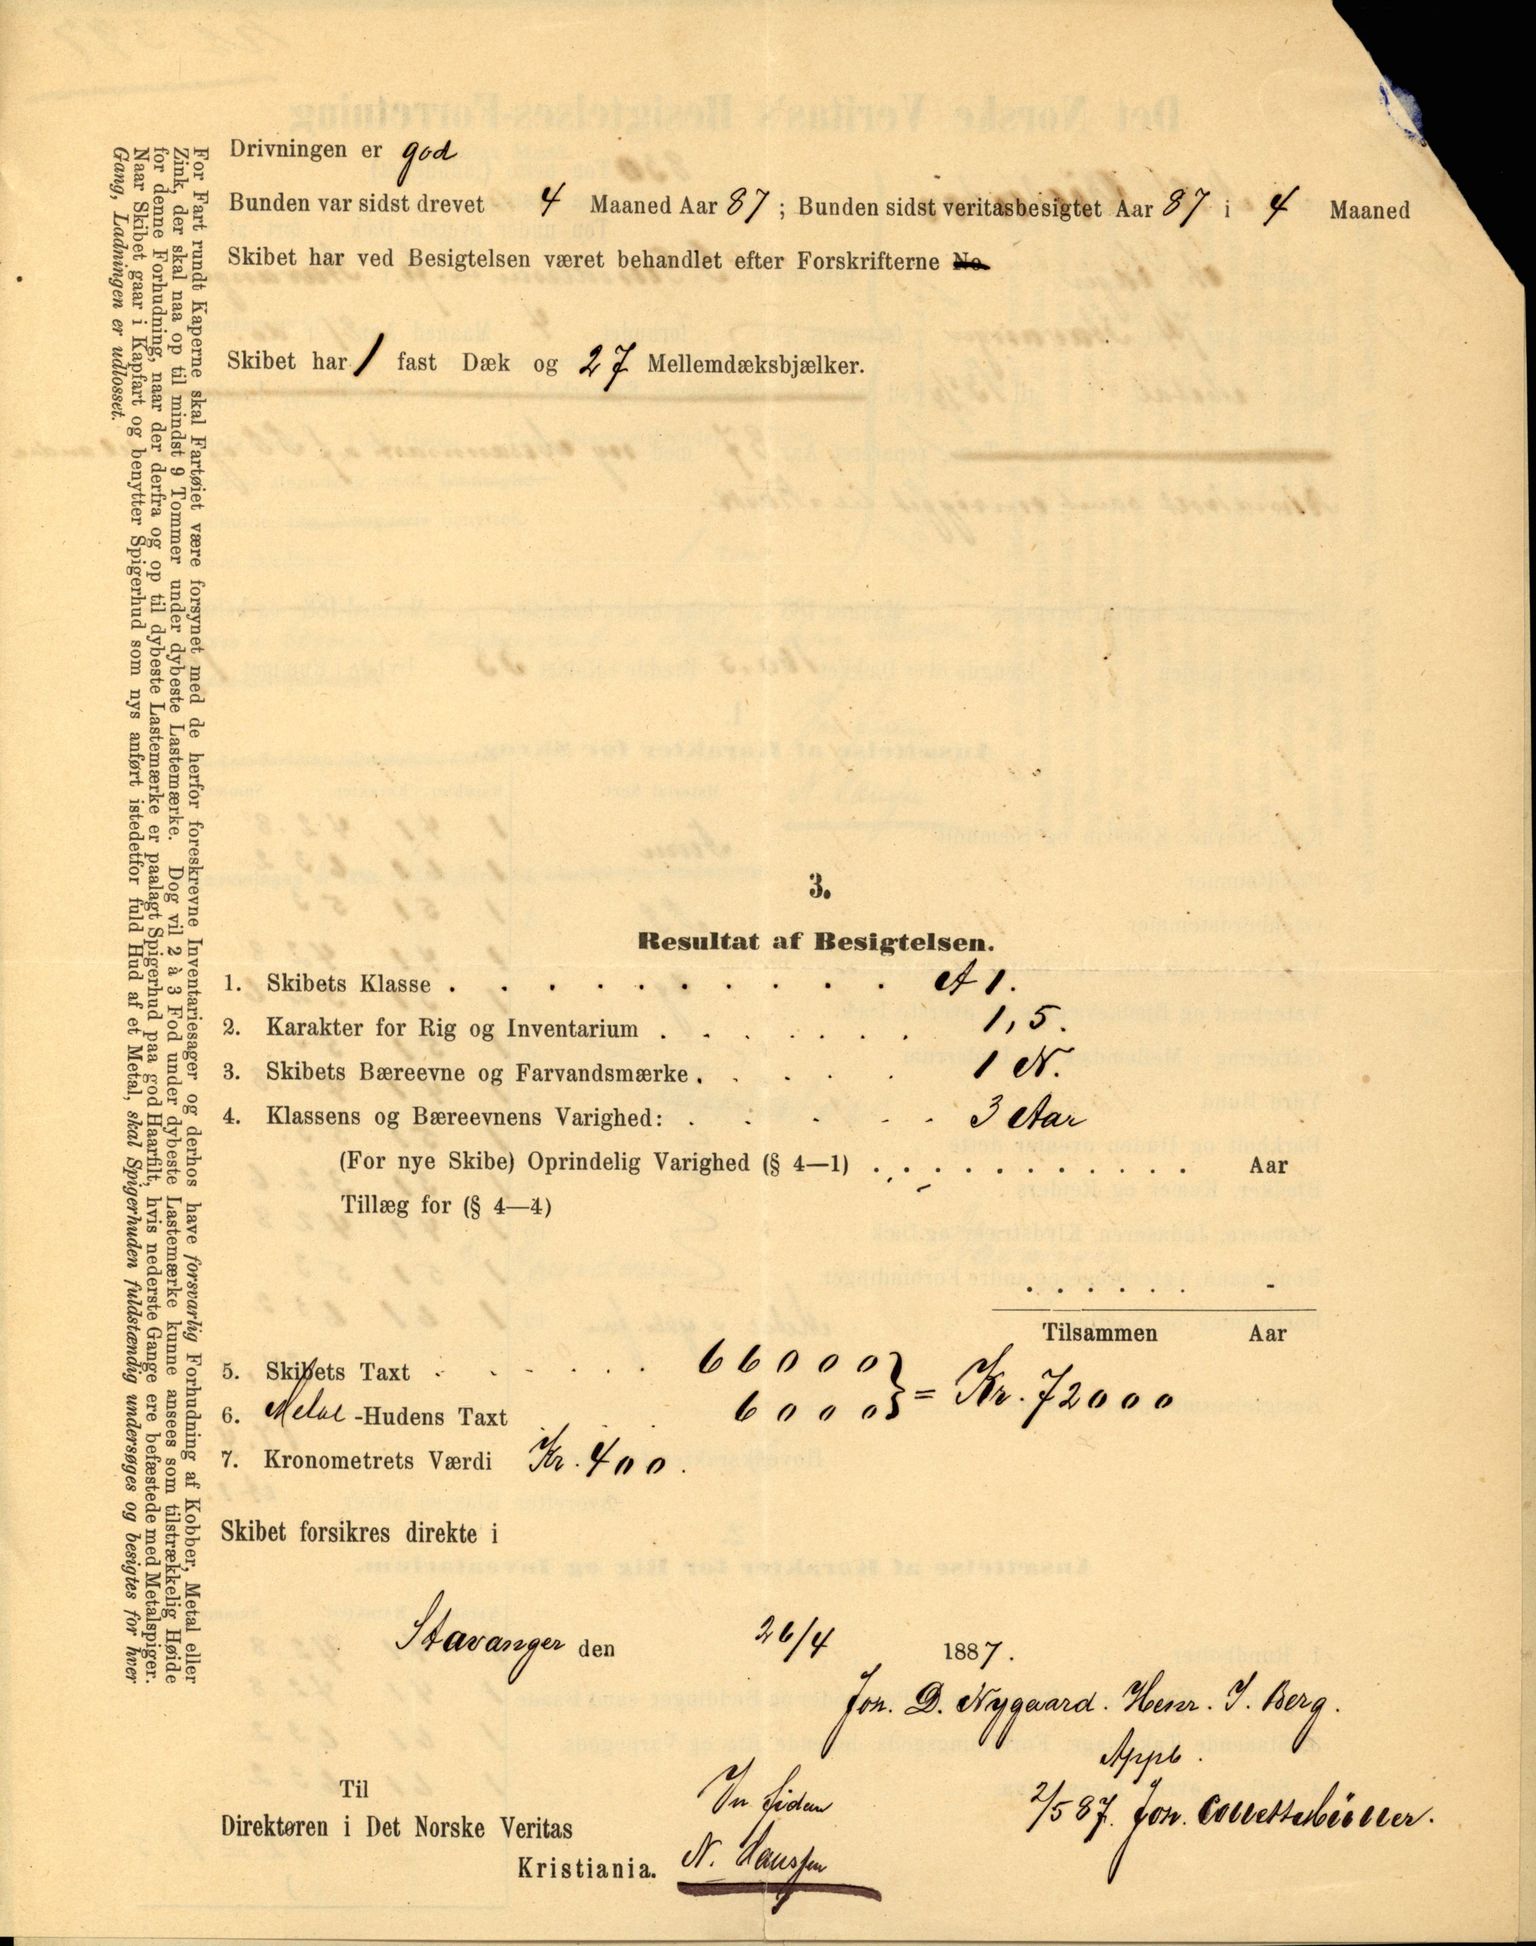 Drivningen er god
Bunden var sidst drevet 4 Maaned Aar 87; Bunden sidst veritasbesigtet Aar 87 i 4 Maaned
Skibet har ved Besigtelsen været behandlet efter Forskrifterne No.
Skibet har 1 fast Dæk og 27 Mellemdæksbjælker.
For Fart rundt Kaperne skal Fartøiet være forsynet med de herfor foreskrevne Inventariesager og derhos have forsvarlig Forhudning af Kobber, Metal eller
Zink, der skal naa op til mindst 9 Tommer under dybeste Lastemærke. Dog vil 2 à 3 Fod under dybeste Lastemærke kunne ansees som tilstrækkelig Høide
for denne Forhudning, naar der derfra og op til dybeste Lastemærke er paalagt Spigerhud paa god Haarfilt, hvis nederste Gange ere befæstede med Metalspiger.
Naar Skibet gaar i Kapfart og benytter Spigerhud som nys anført istedetfor fuld Hud af et Metal, skal Spigerhuden fuldstændig undersøges og besigtes for hver
Gang, Ladningen er udlosset.
3.
Resultat af Besigtelsen.
1. Skibets Klasse . . . . . . . . . . A 1.
2. Karakter for Rig og Inventarium . . . . . . . 1,5.
3. Skibets Bæreevne og Farvandsmærke . . . . . 1 N.
4. Klassens og Bæreevnens Varighed: . . . . . 3 Aar
(For nye Skibe) Oprindelig Varighed (§ 4—1) . . . . . . . . . . . Aar
Tillæg for (§ 4—4)
. . . . . . -
Tilsammen Aar
5. Skibets Taxt . . . . . . 66000
6. Metal-Hudens Taxt 6000 } = Kr. 72000
7. Kronometrets Værdi Kr. 400.
Skibet forsikres direkte i
Stavanger den 26/4 1887.
Jon. D. Nygaard. Henr. I. Berg.
Appb.
Til
Direktøren i Det Norske Veritas
2/5 87. Jon. Collett Müller.
Kristiania. N. Hanssen